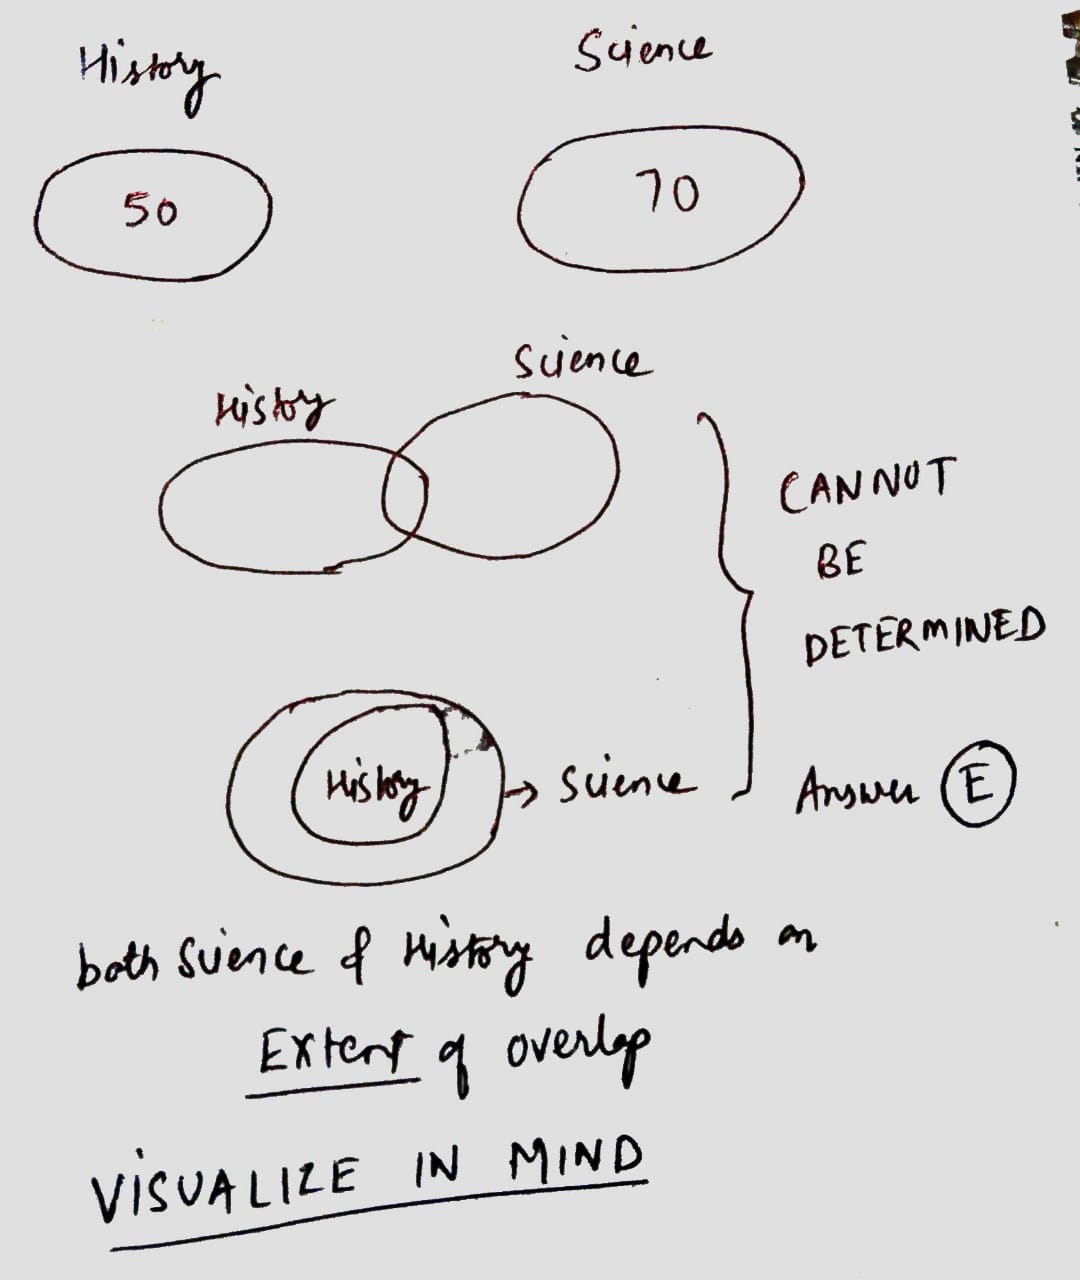 History
Science
50
70
Science
History
CANNOT
BE
DETERMINED
History
→ Science
Answer E
both Science & History depends on
Extent of overlap
VISUALIZE IN MIND